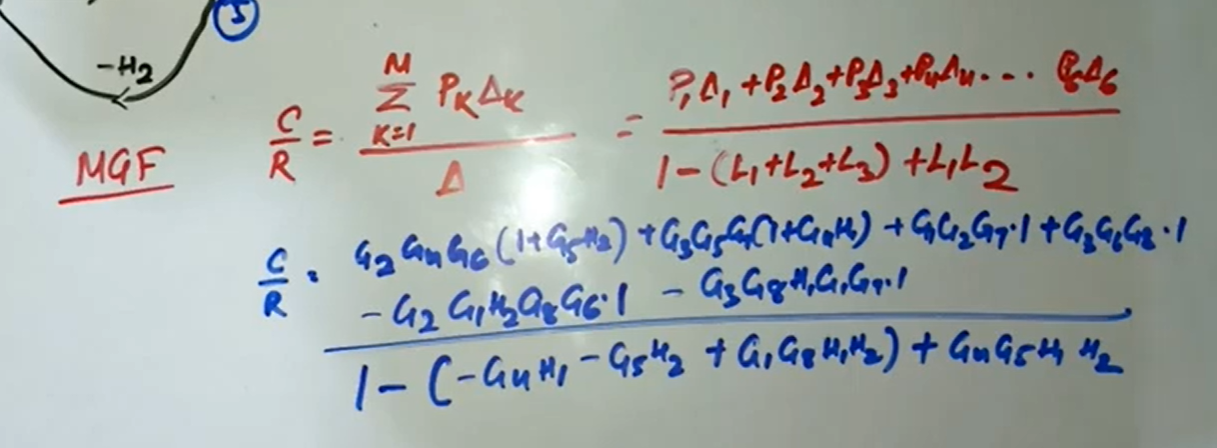 5
-H2
MGF
C/R = M Σ K=1 PK ΔK / Δ = P1Δ1+P2Δ2+P3Δ3+P4Δ4... P6Δ6 / 1-(L1+L2+L3)+L1L2
C/R = G2 G4 G6 (1+G5H2) + G3G5G7(1+G4H1) + G1G2G7·1 + G3G6G8·1
- G2 G1H2G8G6·1 - G3G8H1G1G7·1
1 - (-G4H1 - G5H2 + G1G8H1H2) + G4G5H1H2